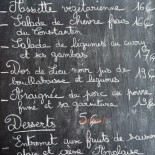 - Assiette végétarienne 16€
- Salade de chèvre frais
du Constantin
- Salade de légumes au curry
et ses gambas
- Dos de lieu noir, jus de
bouillabaisse et légumes
- Araignée de porc au poivre
fumé et sa garniture
Desserts 5€
- Entremet aux fruits de saison
glace et crème Anglaise